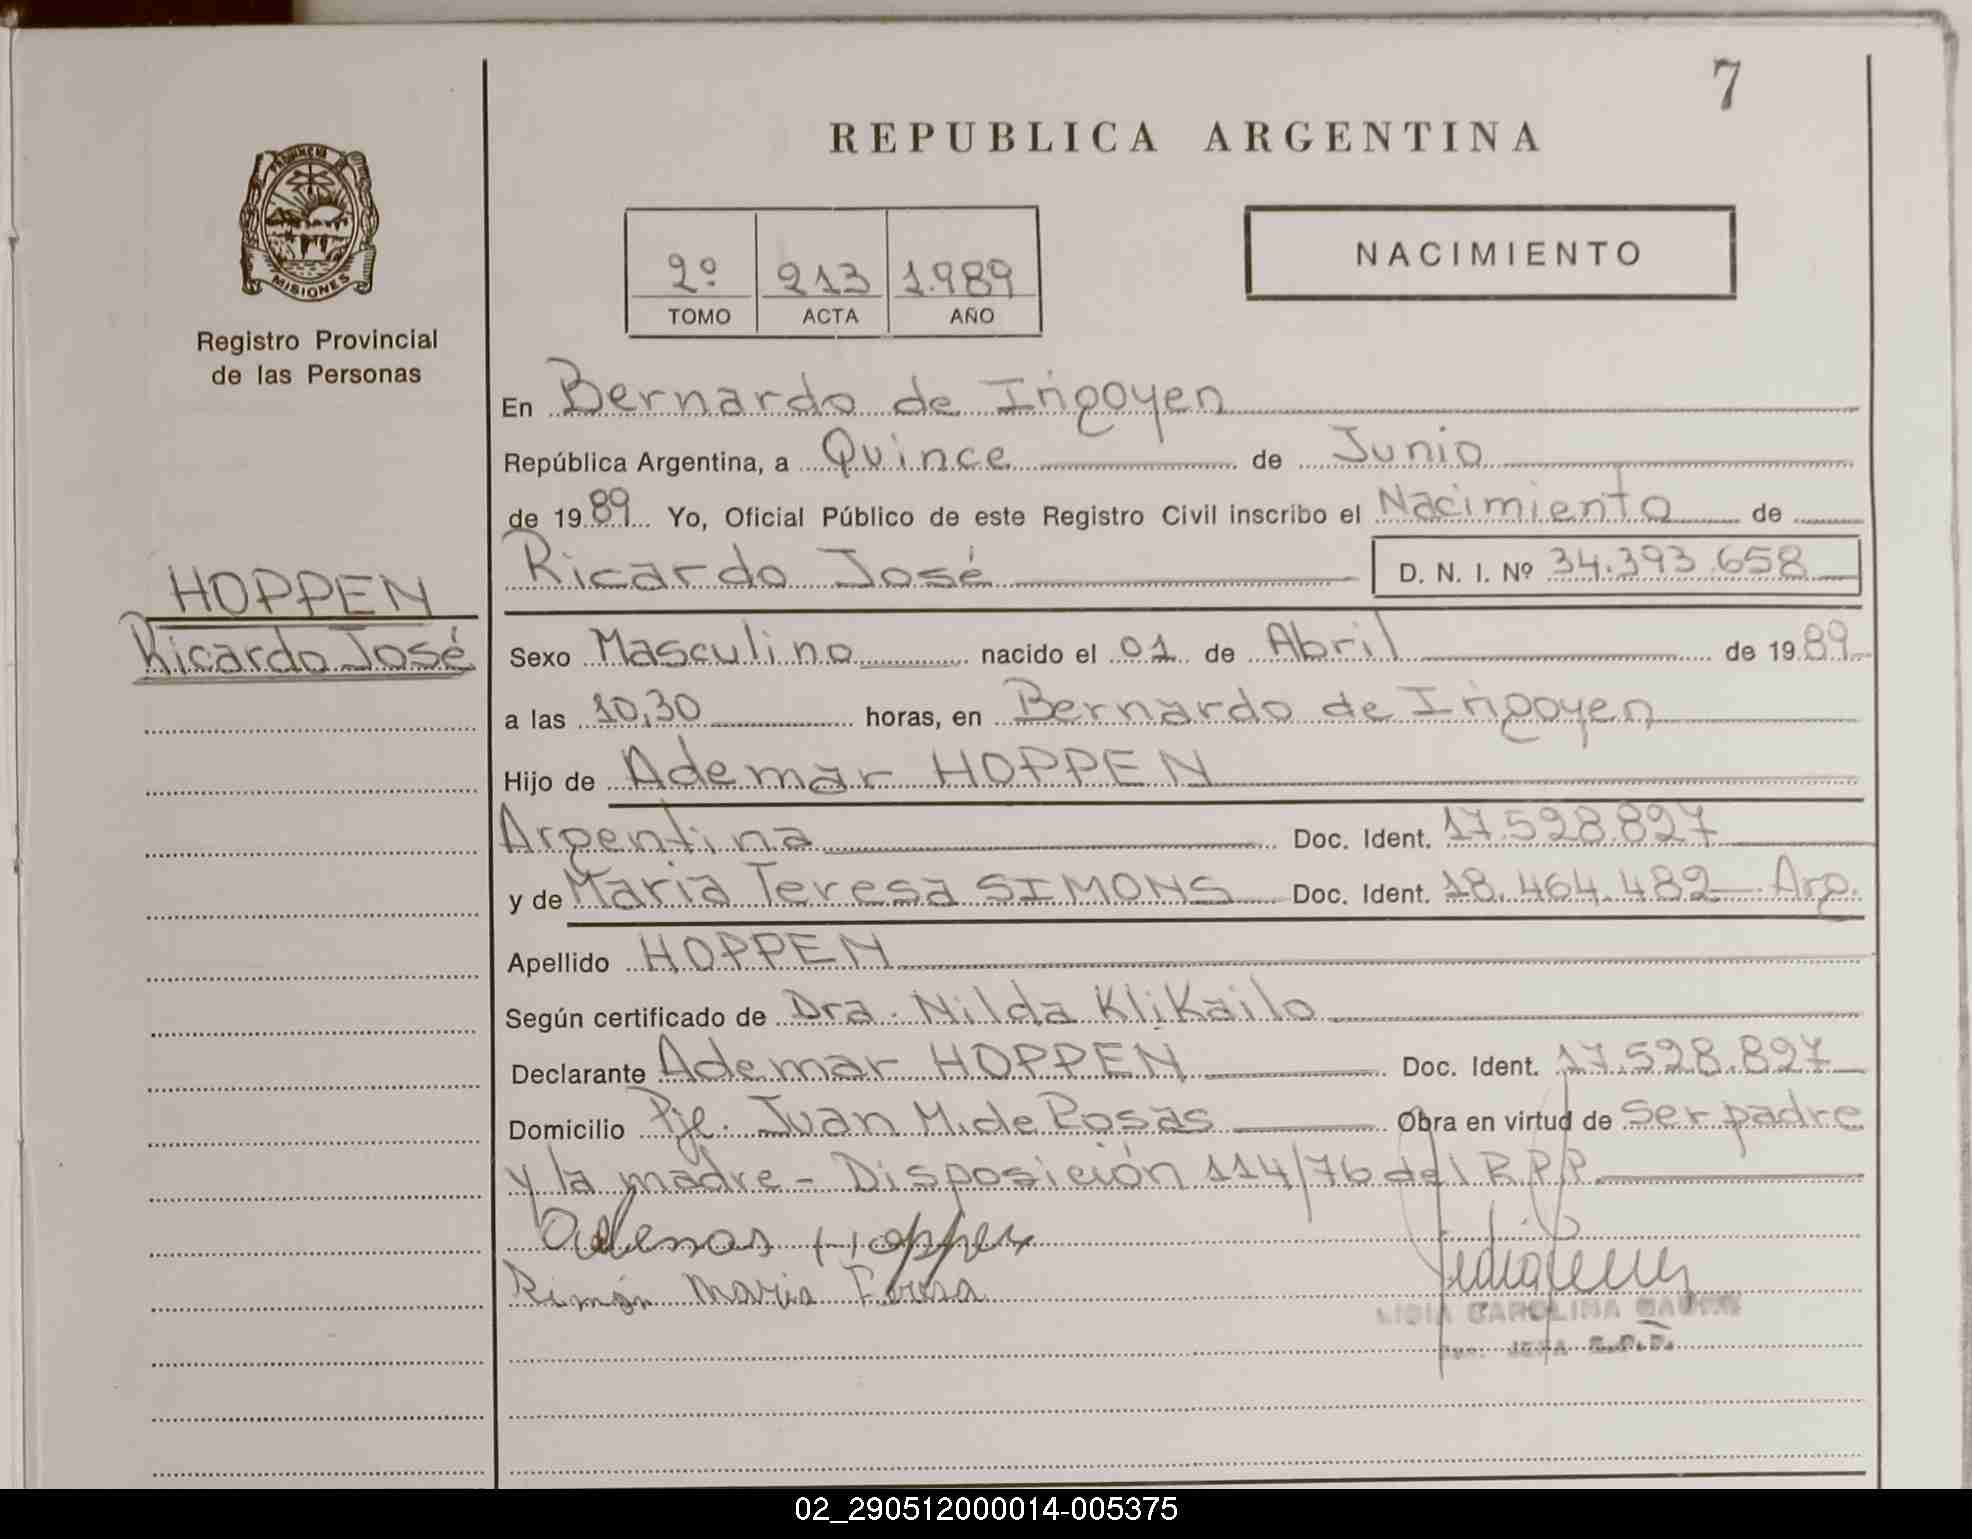 7
REPUBLICA ARGENTINA
PROVINCIA
MISIONES
Registro Provincial
de las Personas
2º 213 1.989
TOMO ACTA AÑO
NACIMIENTO
En Bernardo de Irigoyen
República Argentina, a Quince de Junio
de 1989 Yo, Oficial Público de este Registro Civil inscribo el Nacimiento de
Ricardo José D. N. I. Nº 34.393.658
HOPPEN
Ricardo José
Sexo Masculino nacido el 01 de Abril de 1989
a las 10,30 horas, en Bernardo de Irigoyen
Hijo de Ademar HOPPEN
Argentina Doc. Ident. 17.528.827
y de Maria Teresa SIMONS Doc. Ident. 18.464.482 Arg.
Apellido HOPPEN
Según certificado de Dra. Nilda Klikailo
Declarante Ademar HOPPEN Doc. Ident. 17.528.827
Domicilio Pje. Juan M. de Rosas Obra en virtud de Ser padre
y la madre - Disposición 114/76 del R.P.P.
Maria
LIDIA CAROLINA
JEFA
02_290512000014-005375